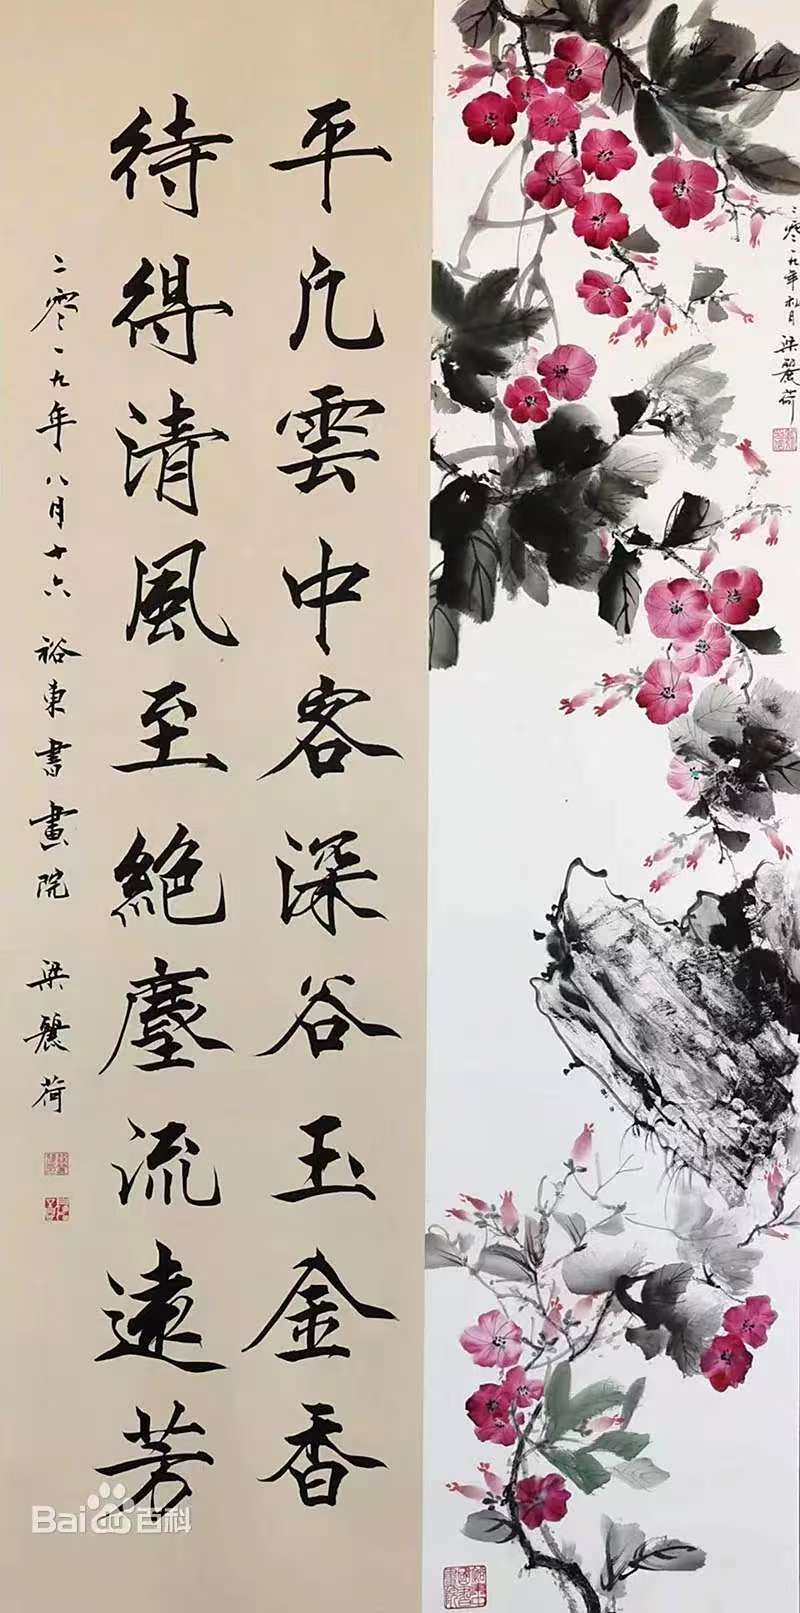 二零一九年月 梁麗荷
平凡雲中客深谷玉金香
待得清風至絕塵流遠芳
二零一九年八月十六 裕東書畫院 梁麗荷
Bai百科